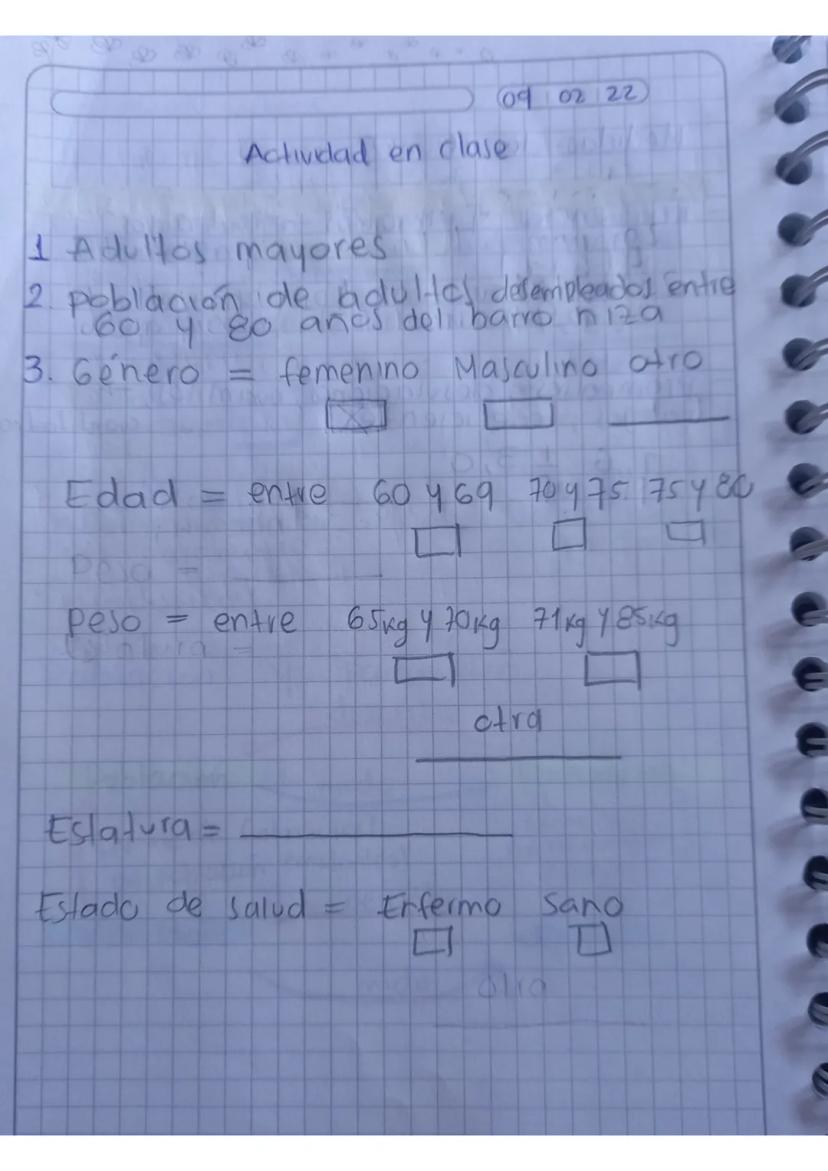 09 02 22
Actividad en clase
1 Adultos mayores
2. población de adultos desempleados entre
60 y 80 años del barro niza
3. Género = femenino Masculino otro
Edad = entre 60 y 69 70 y 75 75 y 80
Peso =
peso = entre 65kg y 70kg 71kg y 85kg
otra
Estatura =
Estado de salud = Enfermo Sano
otro